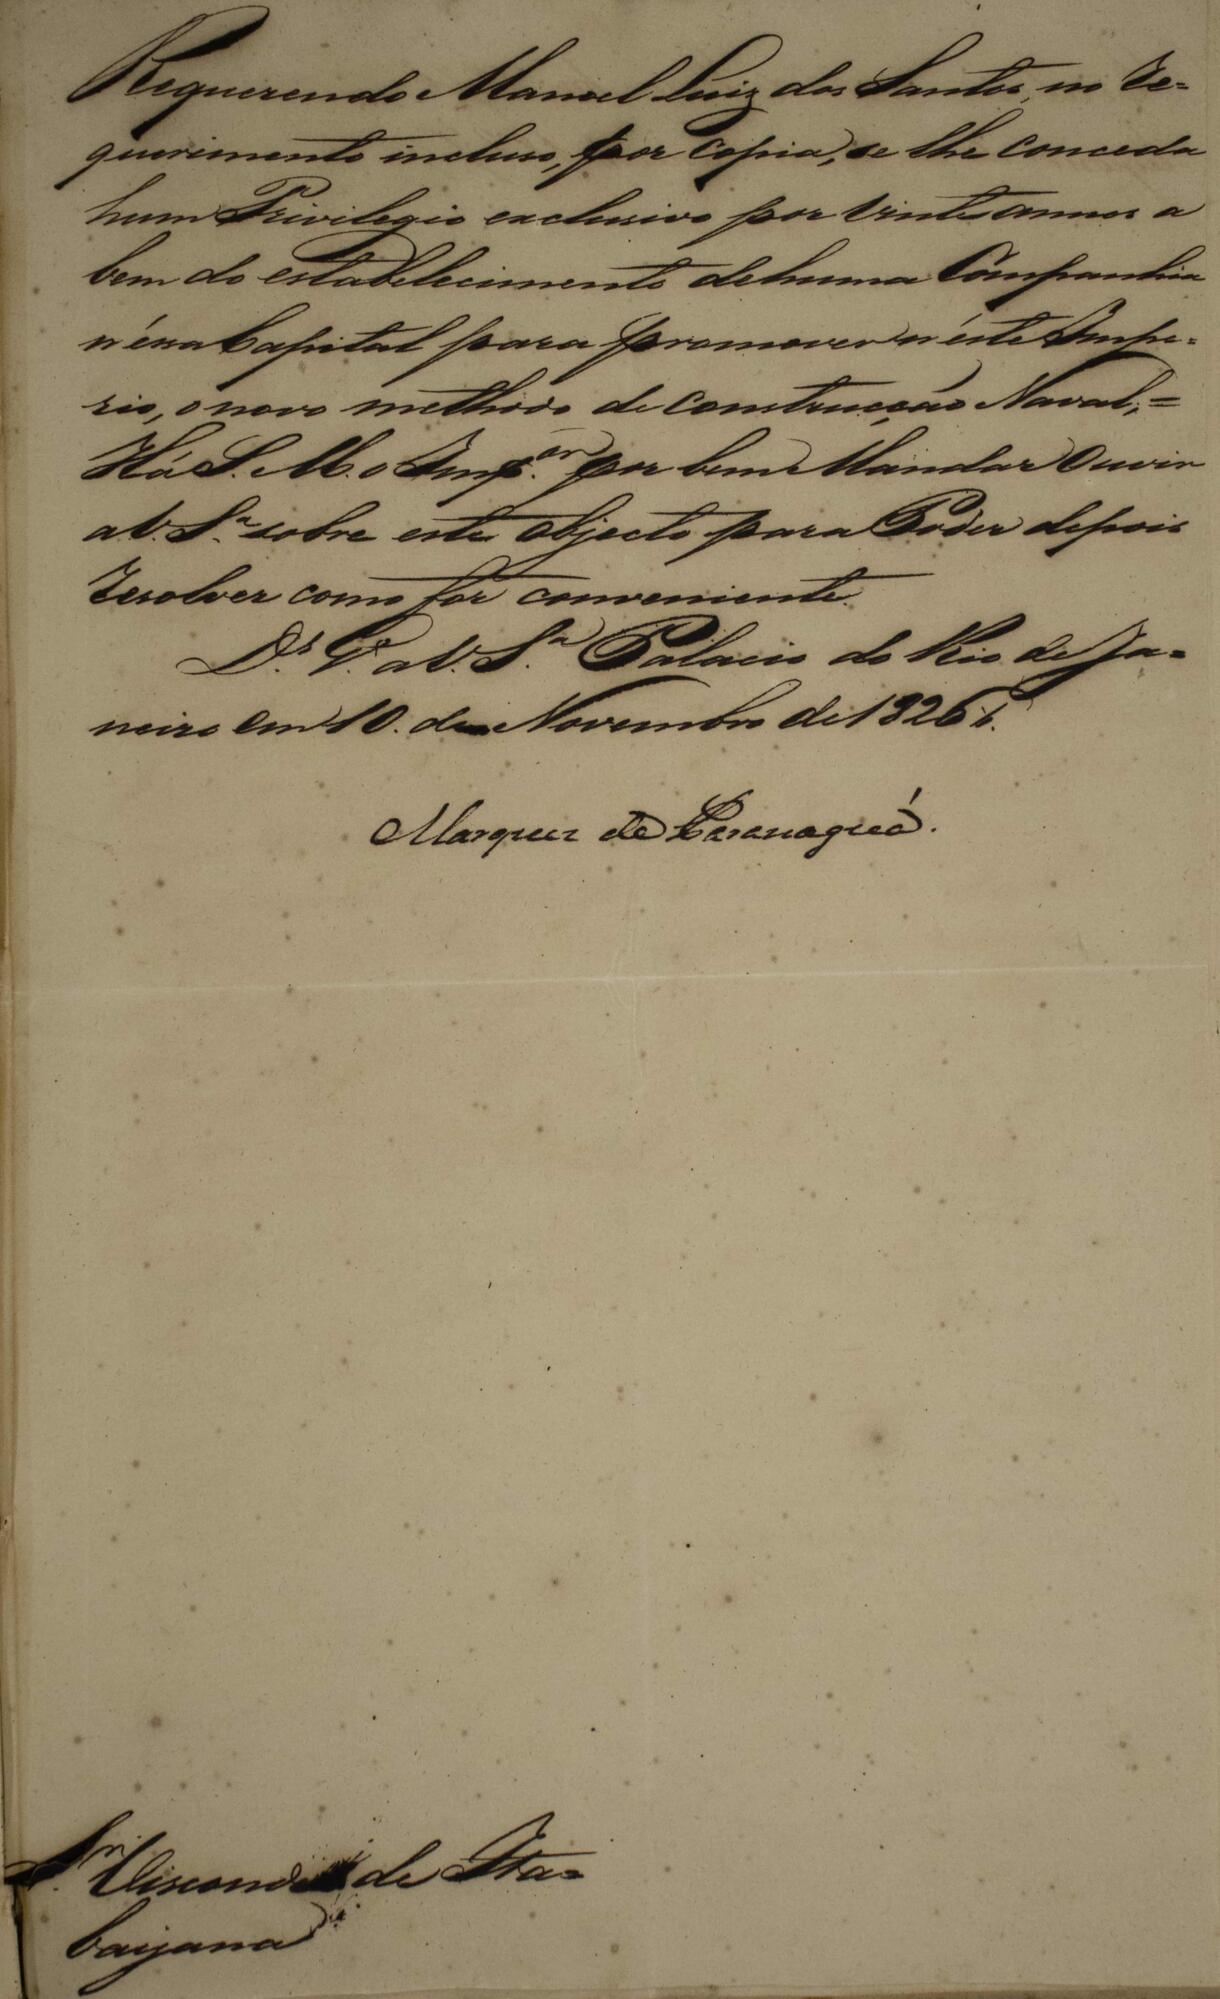 Requerendo Manoel Luiz dos Santos, no Re=
querimento incluso, por copia, se lhe conceda
hum Privilegio exclusivo por vinte annos a
bem do estabelecimento de huma Companhia
n'éssa Capital para promover n'éste Impe=
rio, o novo methodo de construcção Naval,=
Há S. M. o Imp.or por bem Mandar Ouvir
a V. S.a sobre este objecto para Poder depois
resolver como for conveniente.
D.s G.e a V. S.a Palacio do Rio de Ja=
neiro em 10. de Novembro de 1826
Marquez de Paranaguá.
Sr. Visconde de Ita=
baijana